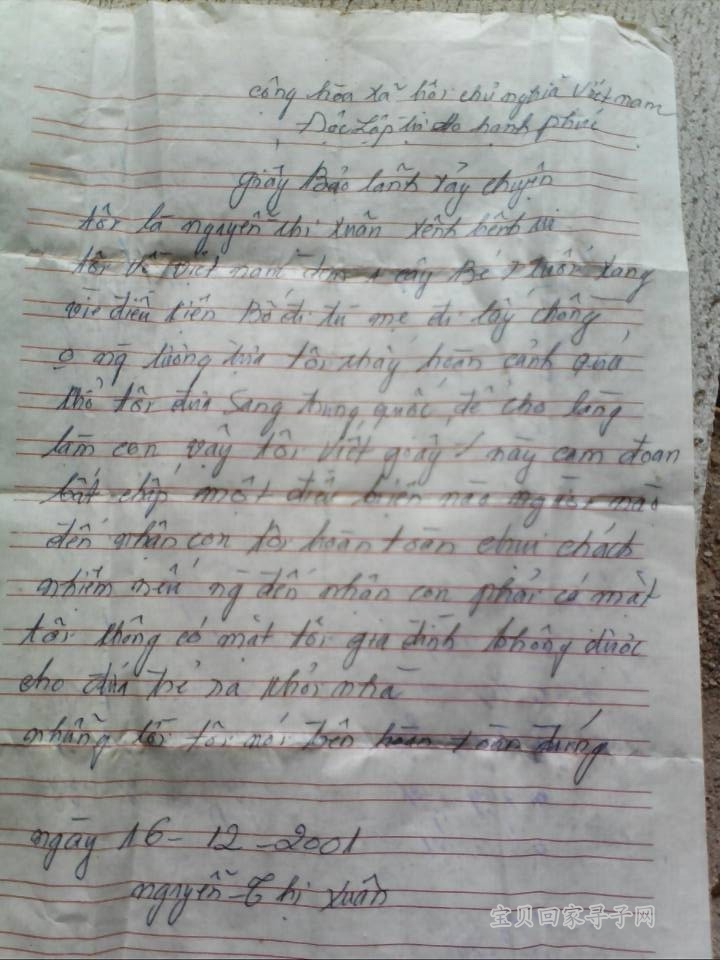 công hòa xã hôi chủ nghĩa Việt nam
Dôc Lập tự do hanh phúc
giấy Bảo lãnh xảy chuyện
tôi là nguyễn thi xuân
tôi về việt nam đem 1 Bé 7 tuổi xang
vì điều kiện Bố đi tù mẹ đi lấy chồng
tôi thấy hoàn cảnh quá
khổ tôi đưa sang trung quốc để cho làng
làm con vậy tôi viết giấy này cam đoan
bất chấp một điều kiện nào người nào
đến nhận con tôi hoàn toàn chịu chách
nhiệm nếu ng đến nhận con phải có mặt
tôi không có mặt tôi gia đình không được
cho đứa trẻ ra khỏi nhà
những lời tôi nói trên hoàn toàn đúng
ngày 16-12-2001
nguyễn Thị xuân
宝贝回家寻子网